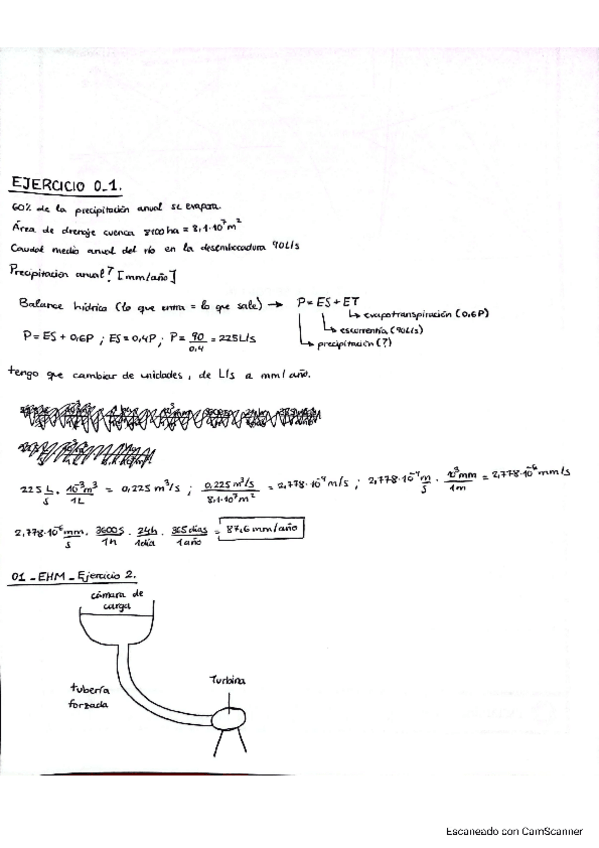 EJERCICIO 0_1.
60% de la precipitación anual se evapora.
Área de drenaje cuenca 8100ha = 8,1·10⁷m²
Caudal medio anual del río en la desembocadura 90L/s
Precipitación anual? [mm/año]
Balance hídrico (lo que entra = lo que sale) → P = ES + ET
↳ evapotranspiración (0,6P)
↳ escorrentía (90L/s)
↳ precipitación (?)
P = ES + 0,6P ; ES = 0,4P ; P = 90/0,4 = 225L/s
tengo que cambiar de unidades, de L/s a mm/año.
225 L/s · 10⁻³m³/1L = 0,225 m³/s ; 0,225 m³/s / 8,1·10⁷m² = 2,778·10⁻⁹ m/s ; 2,778·10⁻⁹ m/s · 10³mm/1m = 2,778·10⁻⁶ mm/s
2,778·10⁻⁶ mm/s · 3600s/1h · 24h/1día · 365días/1año = 87,6 mm/año
01_EHM_Ejercicio 2.
cámara de
carga
Turbina
tubería
forzada
Escaneado con CamScanner